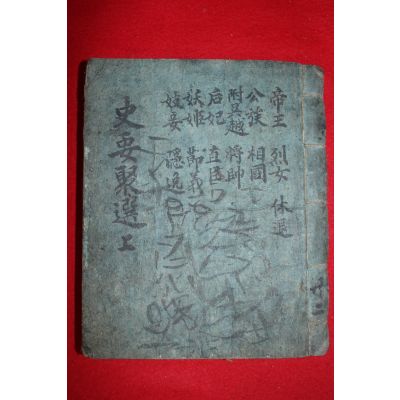 共二
帝王 烈女 休退
公族 相國
附吳越 將帥
后妃 直臣
妖姬 節義
妓妾 隱逸
史要聚選 上